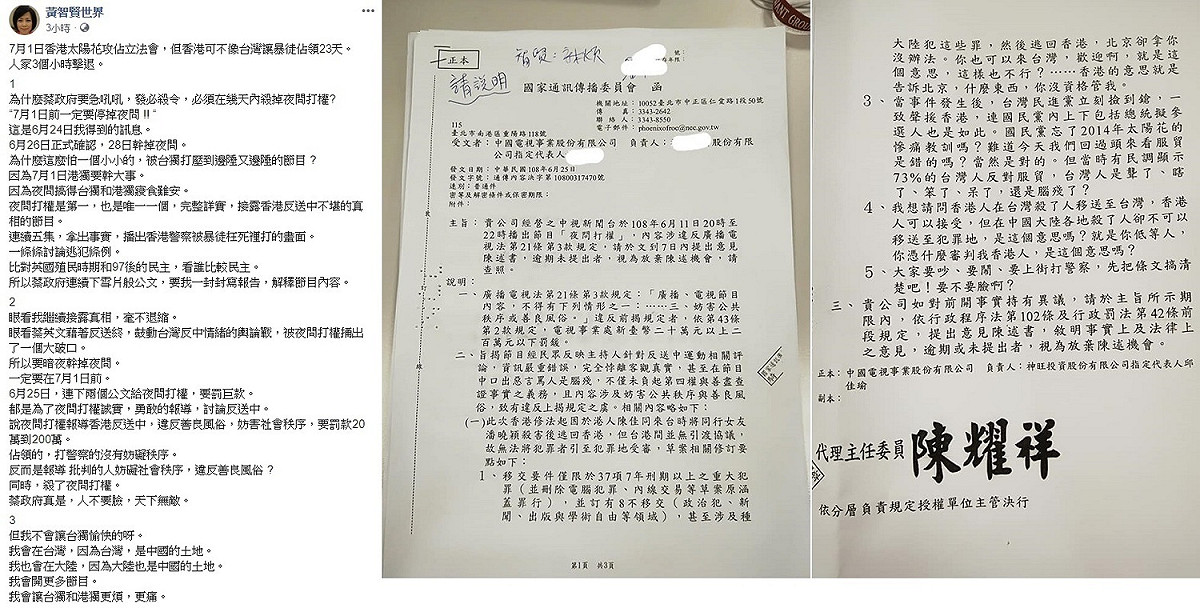 黃智賢世界
3小時
7月1日香港太陽花攻佔立法會，但香港可不像台灣讓暴徒佔領23天。
人家3個小時擊退。
1
為什麼蔡政府要急吼吼，發必殺令，必須在幾天內殺掉夜問打權?
"7月1日前一定要停掉夜問 !! "
這是6月24日我得到的訊息。
6月26日正式確認，28日幹掉夜問。
為什麼這麼怕一個小小的，被台獨打壓到邊陲又邊陲的節目？
因為7月1日港獨要幹大事。
因為夜問搞得台獨和港獨寢食難安。
夜問打權是第一，也是唯一一個，完整詳實，接露香港反送中不堪的真相的節目。
連續五集，拿出事實，播出香港警察被暴徒枉死裡打的畫面。
一條條討論逃犯條例。
比對英國殖民時期和97後的民主，看誰比較民主。
所以蔡政府連續下雪片般公文，要我一封封寫報告，解釋節目內容。
2
眼看我繼續接露真相，毫不退縮。
眼看蔡英文藉著反送終，鼓動台灣反中情緒的輿論戰，被夜問打權捅出了一個大破口。
所以要暗夜幹掉夜問。
一定要在7月1日前。
6月25日，連下兩個公文給夜問打權，要罰巨款。
都是為了夜問打權誠實，勇敢的報導，討論反送中。
說夜問打權報導香港反送中，違反善良風俗，妨害社會秩序，要罰款20萬到200萬。
佔領的，打警察的沒有妨礙秩序。
反而是報導 批判的人妨礙社會秩序，違反善良風俗？
同時，殺了夜問打權。
蔡政府真是，人不要臉，天下無敵。
3
但我不會讓台獨愉快的呀。
我會在台灣，因為台灣，是中國的土地。
我也會在大陸，因為大陸也是中國的土地。
我會開更多節目。
我會讓台獨和港獨更煩，更痛。
正本
請說明
號：
保存年限：
國家通訊傳播委員會 函
機關地址：10052臺北市中正區仁愛路1段50號
傳 真：3343-2642
聯 絡 人：3343-8550
電子郵件：phoenixofroc@ncc.gov.tw
115
臺北市南港區重陽路118號
受文者：中國電視事業股份有限公司 負責人：股份有限
公司指定代表人
發文日期：中華民國108年6月25日
發文字號：通傳內容決字第10800317470號
速別：普通件
密等及解密條件或保密期限：
附件：
主旨：貴公司經營之中視新聞台於108年6月11日20時至
22時播出節目「夜問打權」，內容涉違反廣播電
視法第21條第3款規定，請於文到7日內提出意見
陳述書，逾期未提出者，視為放棄陳述機會，請
查照。
說明：
一、廣播電視法第21條第3款規定：「廣播、電視節目
內容，不得有下列情形之一：……三、妨害公共
秩序或善良風俗。」違反前揭規定者，依第43條
第2款規定，電視事業處新臺幣二十萬元以上二
百萬元以下罰鍰。
二、旨揭節目經民眾反映主持人針對反送中運動相關評
論，資訊嚴重錯誤，完全悖離客觀真實，甚至在節目
中口出惡言罵人是腦殘，不僅未負起第四權與善盡查
證事實之義務，且內容涉及妨害公共秩序與善良風
俗，致有違反上揭規定之虞。相關內容略如下：
(一)此次香港修法起因於港人陳佳同來台時將同行女友
潘曉穎殺害後逃回香港，但台港間並無引渡協議，
故無法將犯罪者引至犯罪地受審，草案相關修訂要
點如下：
1、移交要件僅限於37項7年刑期以上之重大犯
罪（並刪除電腦犯罪、內線交易等草案原涵
蓋罪行）， 並訂有8不移交（政治犯、新
聞、出版與學術自由等領域），甚至涉及種
第1頁 共3頁
大陸犯這些罪，然後逃回香港，北京卻拿你
沒辦法。你也可以來台灣，歡迎啊，就是這
個意思，這樣也不行？……香港的意思就是
告訴北京，什麼東西，你沒資格管我。
3、當事件發生後，台灣民進黨立刻撿到鎗，一
致聲援香港，連國民黨內上下包括總統擬參
選人也是如此。國民黨忘了2014年太陽花的
慘痛教訓嗎？難道今天我們回過頭來看服貿
是錯的嗎？當然是對的。但當時有民調顯示
73%的台灣人反對服貿，台灣人是聾了、瞎
了、笨了、呆了，還是腦殘了？
4、我想請問香港人在台灣殺了人移送至台灣，香港
人可以接受，但在中國大陸各地殺了人卻不可以
移送至犯罪地，是這個意思嗎？就是你低等人，
你憑什麼審判我香港人，是這個意思嗎？
5、大家要吵、要鬧、要上街打警察，先把條文搞清
楚吧！要不要臉啊？
三、貴公司如對前開事實持有異議，請於主旨所示期
限內，依行政程序法第102條及行政罰法第42條前
段規定，提出意見陳述書，敘明事實上及法律上
之意見，逾期或未提出者，視為放棄陳述機會。
正本：中國電視事業股份有限公司 負責人：神旺投資股份有限公司指定代表人邱
佳瑜
副本：
代理主任委員 陳耀祥
依分層負責規定授權單位主管決行